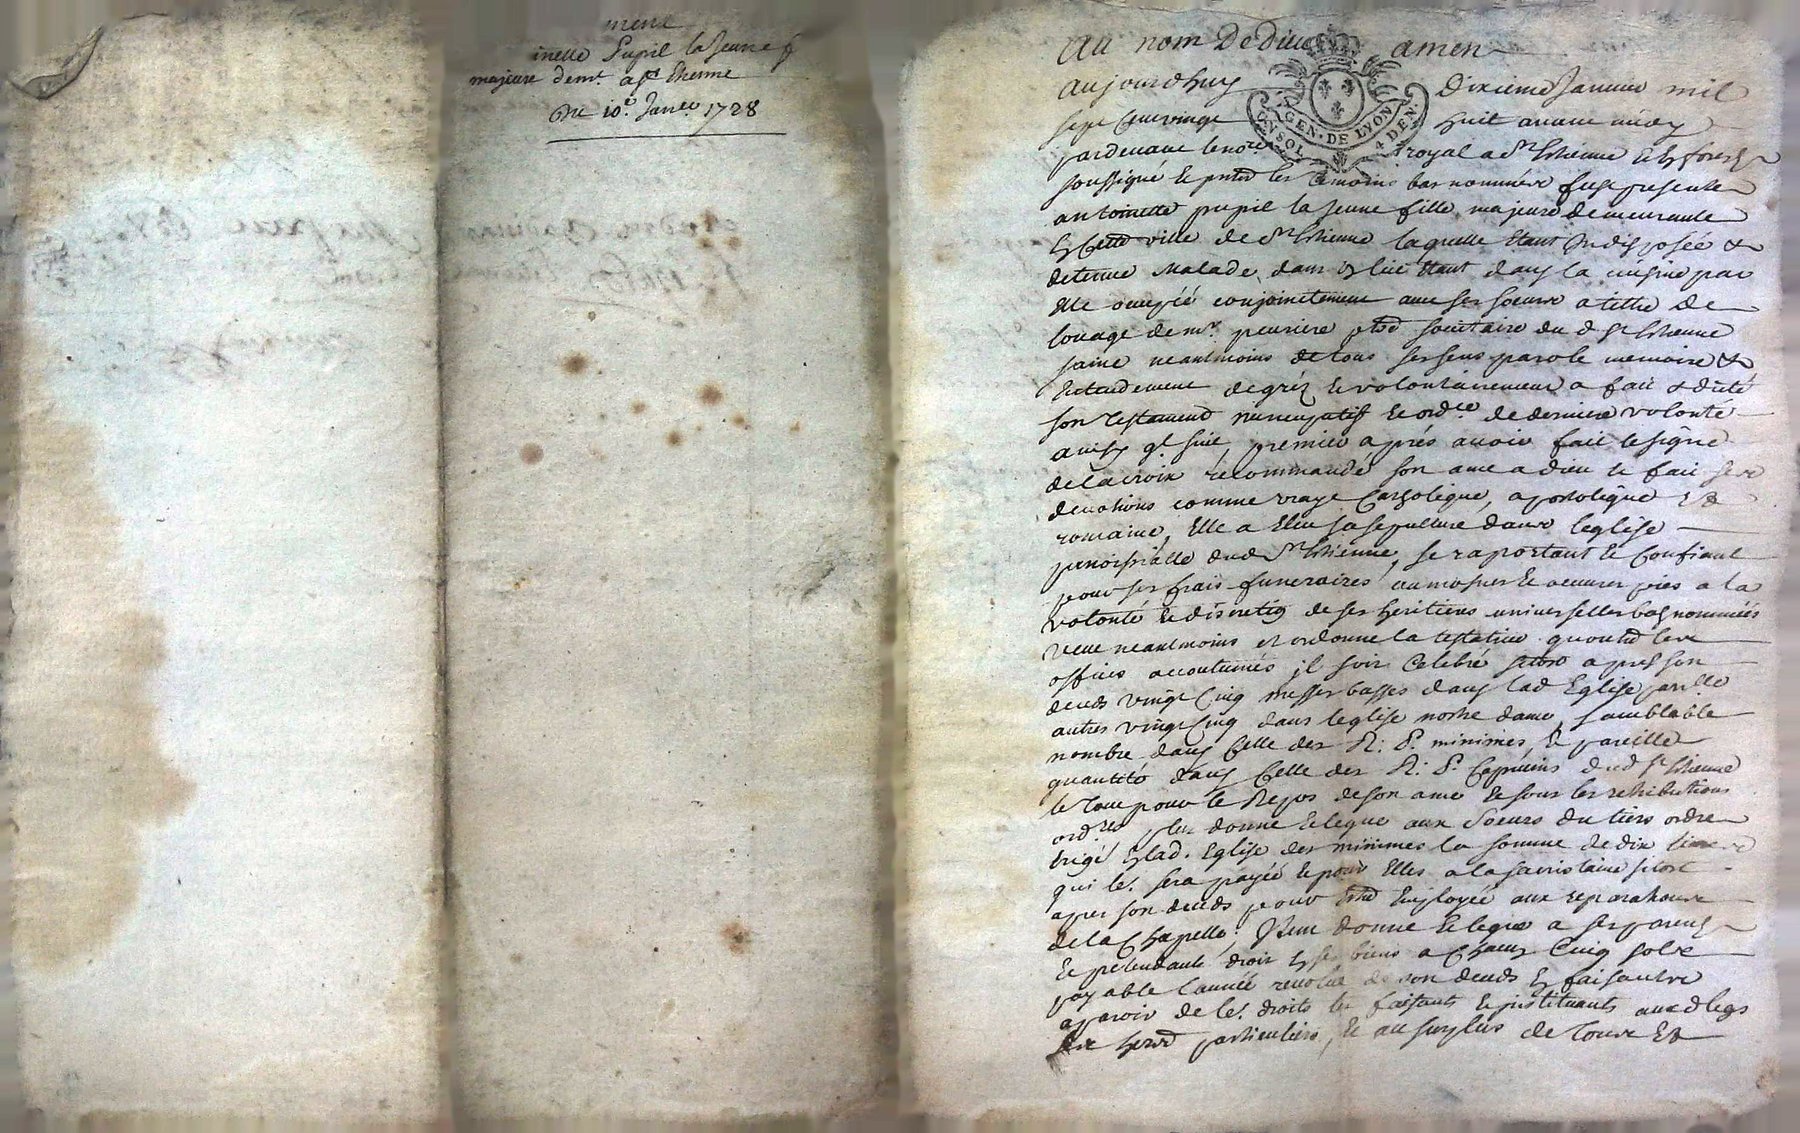 ment
inette Pupil la Jeune f
majeure demt. a St Etienne
Du 10e. Janer. 1728
Au nom De Dieu amen
GEN. DE LYON
4 DEN.
aujourdhuy dixieme Janvier mil
sept Cent vingt huit avant midy
pardevant le nore royal a St Estienne En forest
soussigné et pnts les temoins bas nommés fust presente
antoinette pupil la jeune fille majeure demeurante
En Cette ville de St Estienne laquelle Etant Indisposée &
detenue Malade dans Etant dans la cuisine par
Elle occupée conjointement avec ses soeurs a titre de
louage de mr. peuriere societaire du d St Estienne
saine neantmoins de tous ses sens parole memoire &
Entendement de gréz et volontairement a fait & dicté
son testament nuncupatif et ordce de derniere volonté
ainsy qt suit premier aprés avoir fait le signe
de la croix recommandé son ame a dieu et fait ses
devotions comme vraye Catholique, apostolique Et
romaine, Elle a Eleu sa sepulture dans leglise
parroissialle dud St Estienne, se raportant et Confiant
pour ses frais funeraires aumosnes et oeuvres pies a la
volonté et discretion de ses heritieres universelles bas nommées
veut neantmoins et ordonne la testatrice quoutre les
offices accoutumés il soit Celebré sitost apres son
deceds vingt Cinq messes basses dans lad Eglise parlle
autres vingt Cinq dans leglise nostre dame, semblable
nombre dans Celle des R. P. minimes, et pareille
quantité dans Celle des R. P. Capucins dud St Estienne
le tout pour le Repos de son ame et sous les retributions
ordres plus donne et legue aux soeurs du tiers ordre
Erigé En lad. Eglise des minimes la somme de dix livres
qui le. sera payée et pour Elles a la sacristaine sitost
apres son deceds pour Estre Employée aux reparations
de la Chapelle. Item donne et legue a ses parens
et pretendants droit En ses biens a Chacun Cinq sols
payable lannée revolue de son deceds En faisant
aparoir de le. droits les faisants et instituants aux d legs
ses herrs particuliers, et au surplus de tous Et